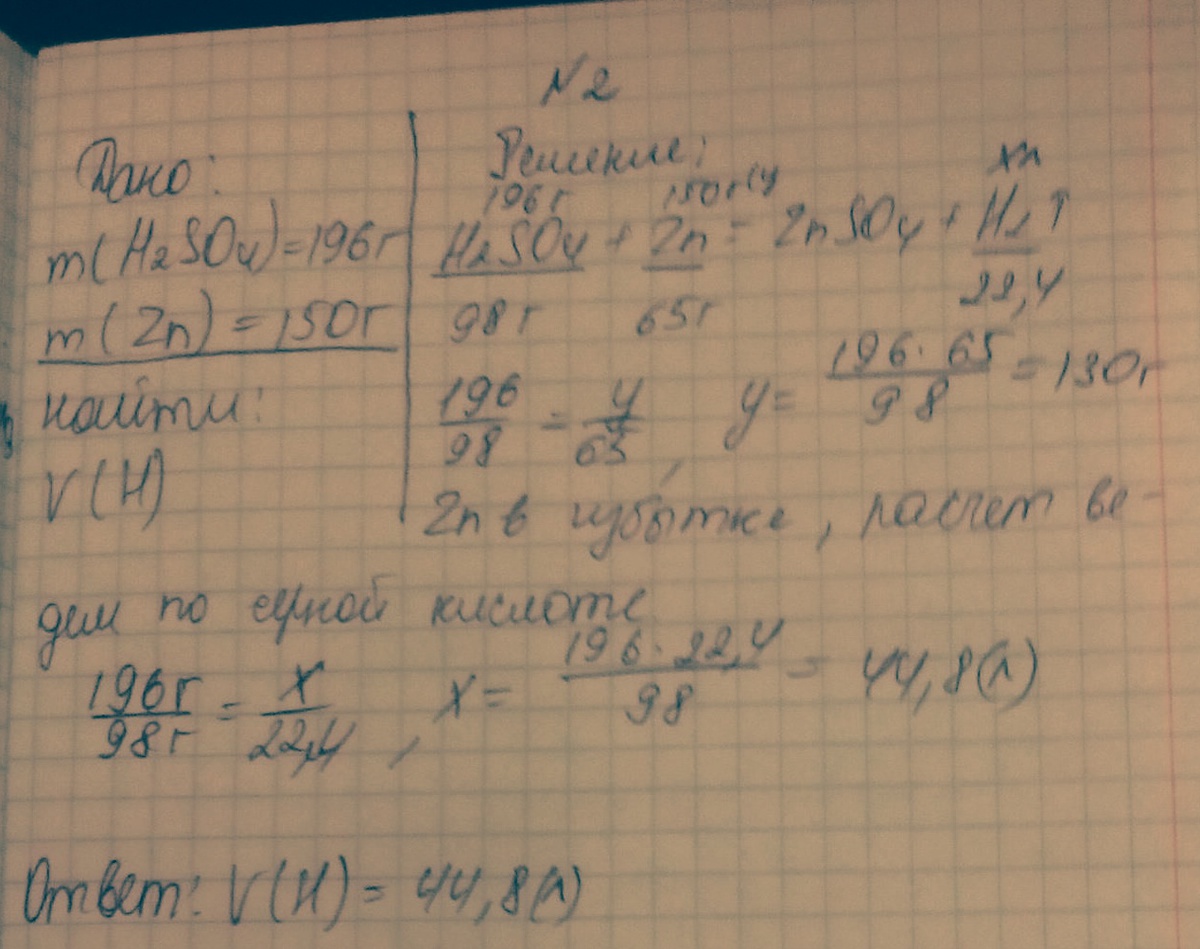 N2
Дано:
m(H2SO4)=196г
m(Zn)=150г
найти:
V(H)
Решение:
196г 150г(y) xл
H2SO4 + Zn = ZnSO4 + H2↑
98г 65г 22,4
196/98 = y/65, y= 196·65/98 = 130г
Zn в избытке, расчет ве-
дем по серной кислоте
196г/98г = x/22,4, x= 196·22,4/98 = 44,8(л)
Ответ: V(H)= 44,8(л)